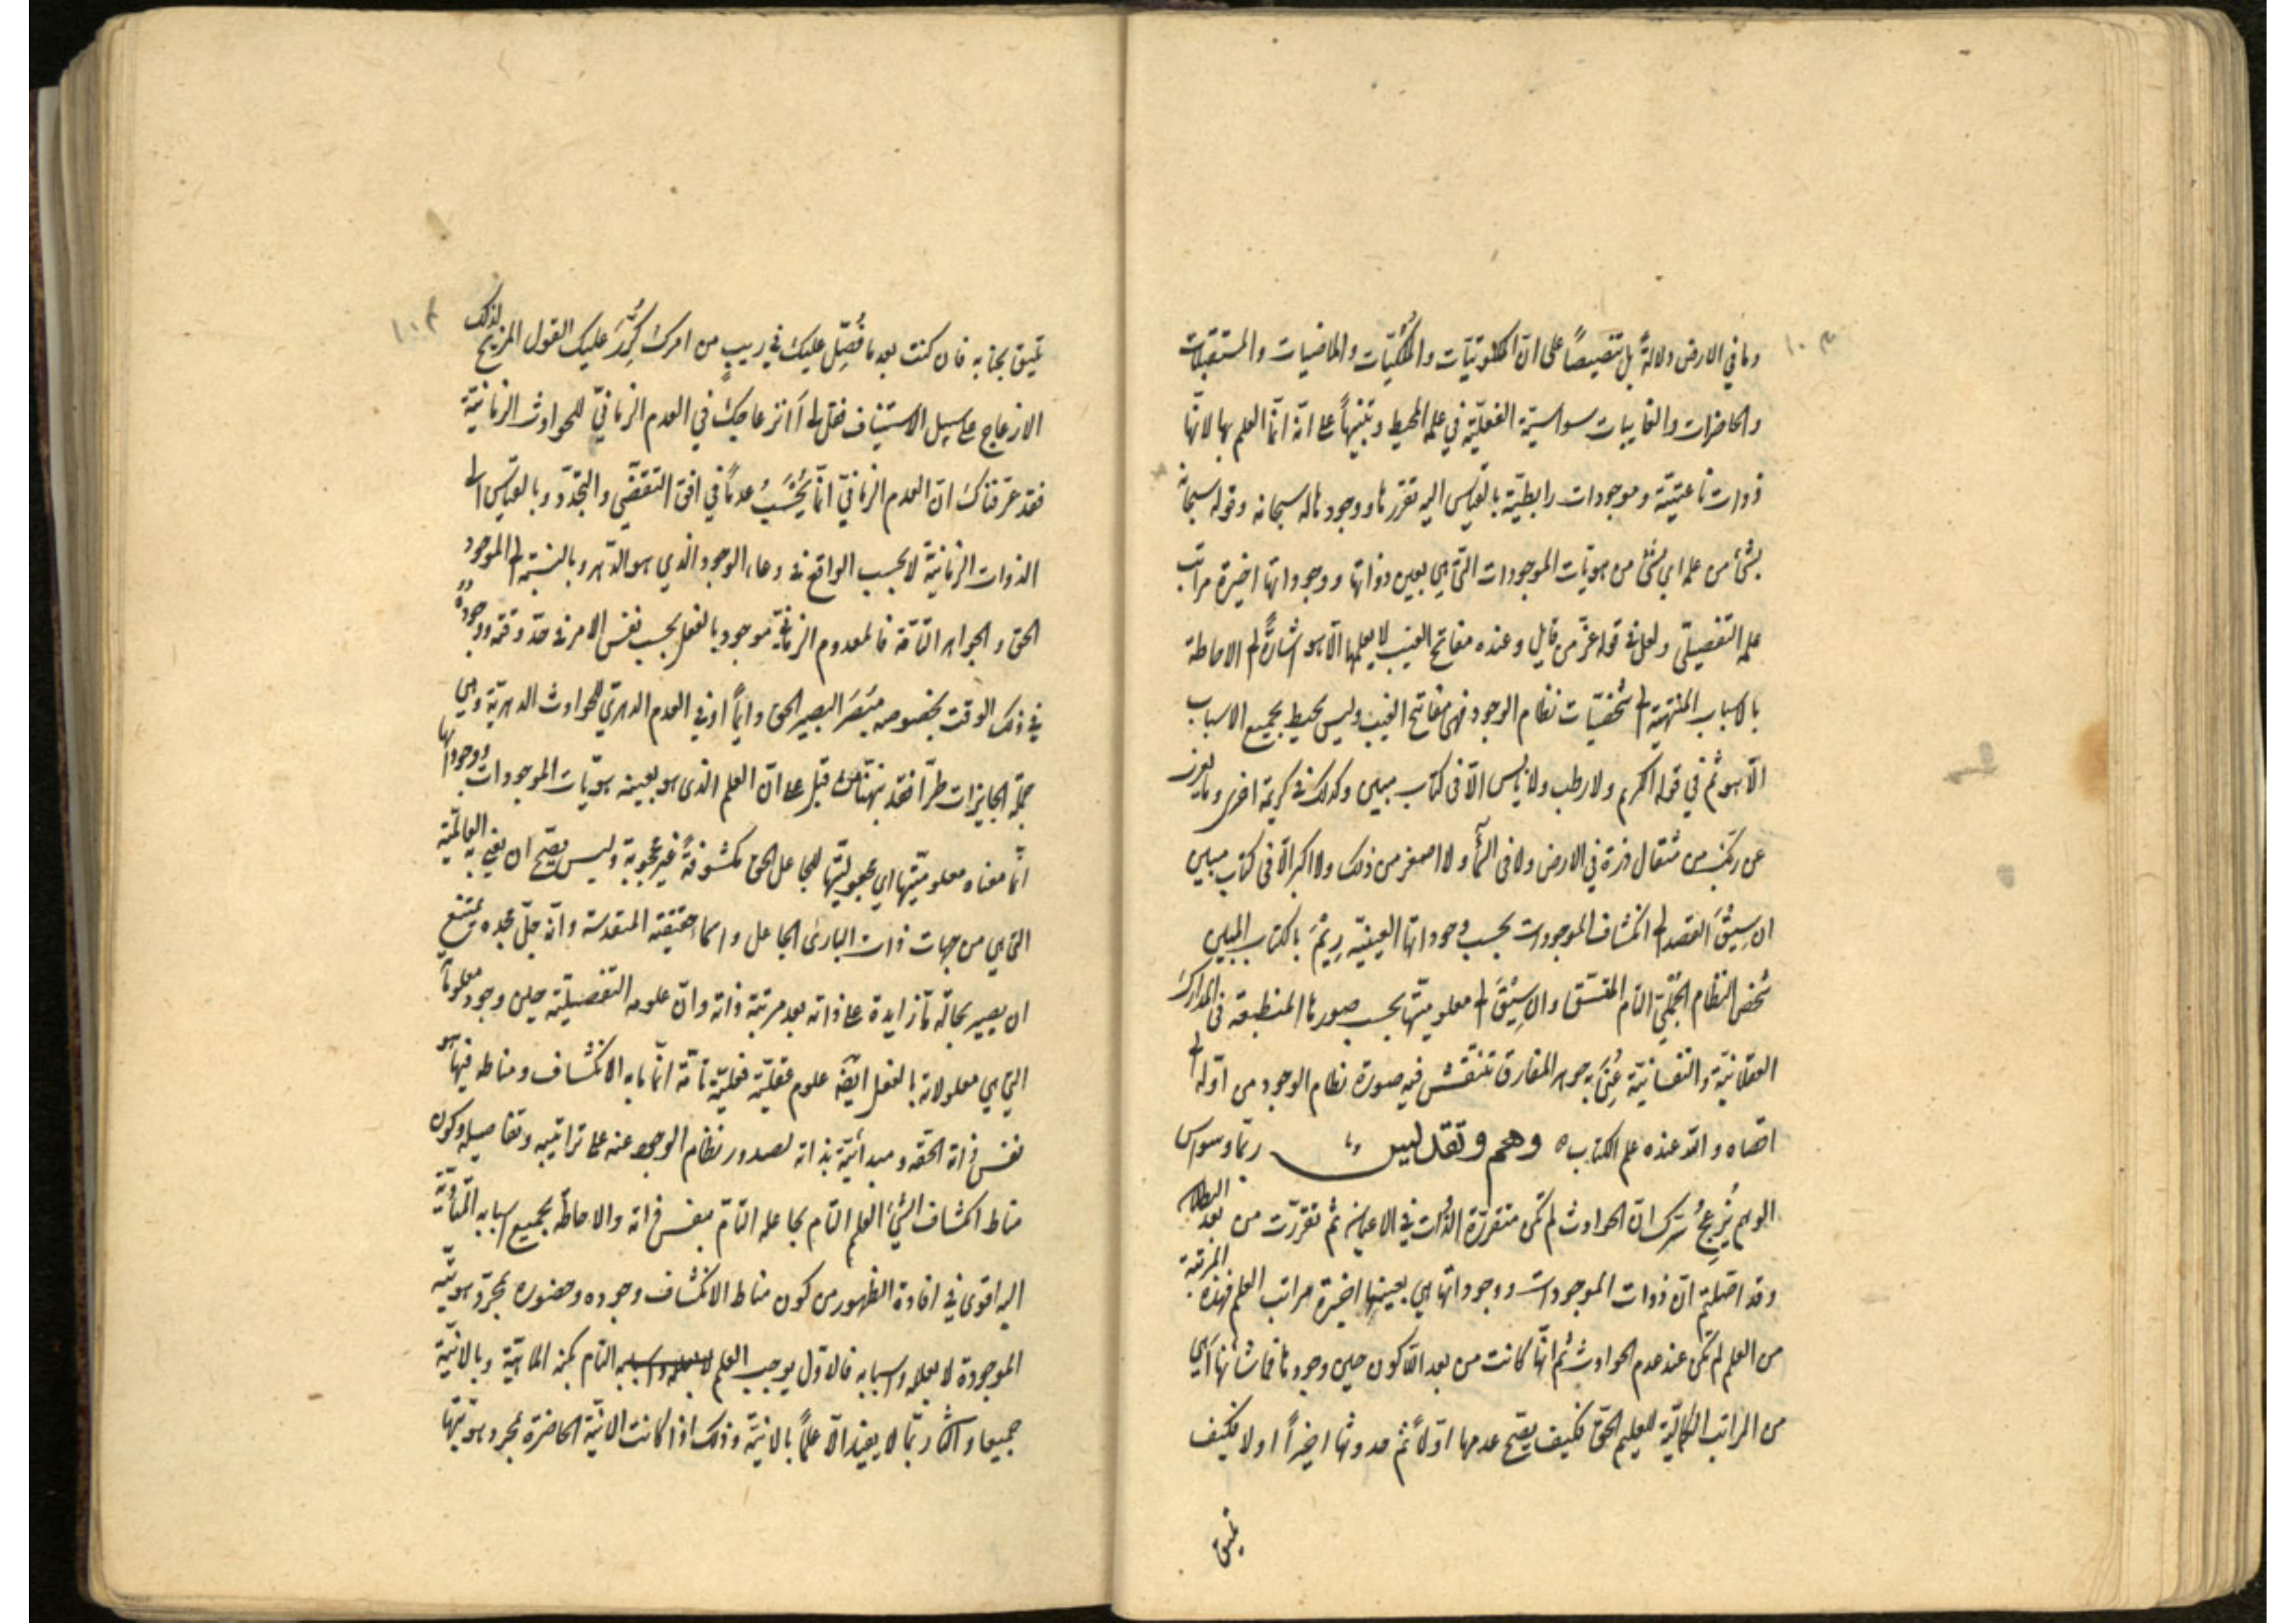 وما في الارض دلالةً بل تنصيصاً على انّ الملكوتيّات والمُلكيّات والماضيات والمستقبلات
والحاضرات والغايبات سواسيّة الفعليّة في علمه المحيط وتنبيهاً على انّه انّما العلم بها لانّها
ذوات ناعتيّة وموجودات رابطيّة بالقياس اليه تقررها ووجودها له سبحانه وقوله سبحانه
بشئ من علمه اي بشئ من هويّات الموجودات الّتي هي بعين ذواتها ووجوداتها اخيرة مراتب
علمه التفصيلّى ولعلّ في قوله عزّ من قايل وعنده مفاتح الغيب لا يعلمها الّا هو اشارةً الى الاحاطة
بالاسباب المنتهية الى شخصّيات نظام الوجود فهى مفاتح الغيب وليس يحيط بجميع الاسباب
الّا هو ثمّ في قوله الكريم ولا رطب ولا يابس الّا فى كتاب مبين وكذلك فى كريمة اخرى وما يعزب
عن ربّك من مثقال ذرة في الارض ولا فى السمآء ولا اصغر من ذلك ولا اكبر الّا فى كتاب مبين
ان سِيْقَ القصد الى انكشاف الموجودات بحسب وجوداتها العينيّة رِيْمَ بالكتاب المبين
شخص النظام الجُمْلّي التام المتسق وان سِيْقَ الى معلوميّتها بحسب صورها المنطبعة فى المدارك
العقلانيّة والنفسانيّة عُنِىَ به جوهر المفارق تنتقش فيه صورة نظام الوجود من اوّله الى
اقصاه والله عنده علم الكتاب ه وهم وتقديس ربّما وسواس
الوهم يُزعِجُ سرّك انّ الحوادث لم تكن متقررّة الذّات في الاعيان ثمّ تقررّت من بعد البطلان
وقد اصّلتم انّ ذوات الموجودات ووجوداتها هي بعينها اخيرة مراتب العلم فهذه المرتبة
من العلم لم تكن عند عدم الحوادث ثمّ انّها كانت من بعد اللّاكون حين وجودها فما شأنها أهي
من المراتب الكماليّة للعليم الحقّ فكيف يصحّ عدمها اوّلاً ثمّ حدوثها اخيراً او لا فكيف
تليق
تليق بجنابه فان كنت بعد ما فُصِّل عليك في ريبٍ من امرك كُرِّرَ عليك القول المزيح لذلك
الازعاج على سبيل الاستيناف فقل لى أانزعاجك في العدم الزمانيّ للحوادث الزمانيّة
فقد عرّفناك انّ العدم الزمانيّ انّما يُحْسَبُ عدمًا في افق التقضّي والتجدّد وبالقياس الى
الذوات الزمانيّة لا بحسب الواقع في وعاء الوجود الذي هو الدّهر وبالنسبة الى الموجود
الحق والجواهر التّامّة فالمعدوم الزمانيّ موجود بالفعل بحسب نفس الامر في حدّ وقته ووجوده
في ذلك الوقت بخصوصه مبْصَر البصير الحق دايماً او في العدم الدهريّ للحوادث الدهريّة وهي
جملة الجايزات طرّاً فقد نبهّناك من قبل على انّ العلم الذى هو بعينه هويّات الموجودات ووجوداتها
انّما معناه معلوميّتها اي مجعوليّتها للجاعل الحق مكشوفةً غير محجوبة وليس يصحّ ان يعني العالميّة
التى هي من جهات ذات البارئ الجاعل واسماء حقيقته المتقدسة وانّه جلّ مجده يمتنع
ان يصير بحالّه ما زايدة على ذاته بعد مرتبة ذاته وانّ علومه التفصيليّة حين وجود معلوماته
التي هي معلولاته بالفعل ايضًا علوم عقليّة فعليّة تامّة انّما ما به الانكشاف ومناطه فيها هو
نفس ذاته الحقّه ومبدأيّته بذاته لصدور نظام الوجود عنه على تراتيبه وتفاصيله وكون
مناط انكشاف الشئ العلم التام بجاعله التامّ بنفس ذاته والاحاطة بجميع اسبابه المتأديّة
اليه اقوى في افادة الظهور من كون مناط الانكشاف وجوده وحضوره بمجرّد هويّته
الموجودة لا بعلله واسبابه فالاوّل يوجب العلم التام بكنه الماهيّة وبالانيّة
جميعا والآخر ربّما لا يفيد الّا علماً بالانيّة وذلك اذا كانت الانيّة الحاضرة بمجرد هويّتها